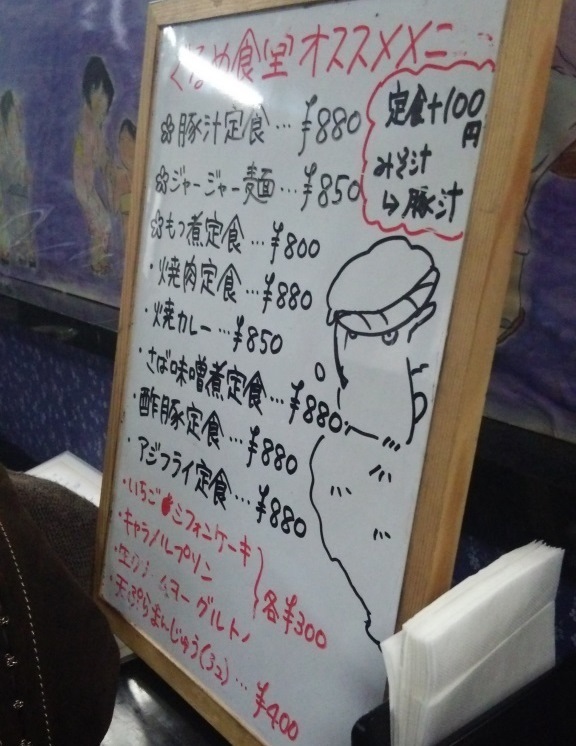 くるめ食堂オススメメニ
定食+100円
みそ汁
↳豚汁
豚汁定食…¥880
ジャージャー麺…¥850
もつ煮定食…¥800
・焼肉定食…¥880
・焼カレー…¥850
・さば味噌煮定食…¥880
・酢豚定食…¥880
・アジフライ定食…¥880
・いちごシフォンケーキ
・キャラメルプリン
ヨーグルト
各¥300
・天ぷらまんじゅう(3コ)…¥400